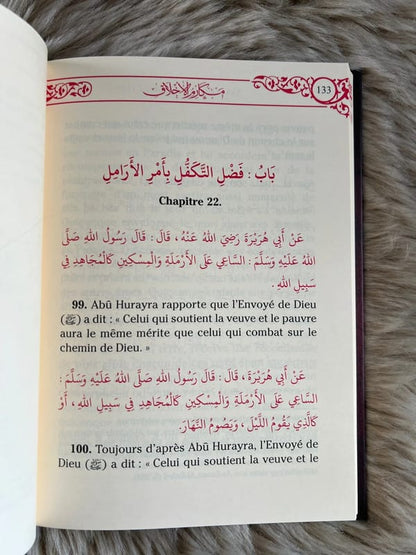 مكارم الأخلاق
133
بَابُ : فَضْلِ التَّكَفُّلِ بِأَمْرِ الأَرَامِلِ
Chapitre 22.
عَنْ أَبِي هُرَيْرَةَ رَضِيَ اللهُ عَنْهُ ، قَالَ : قَالَ رَسُولُ اللهِ صَلَّى
اللهُ عَلَيْهِ وَسَلَّمَ : السَّاعِي عَلَى الأَرْمَلَةِ وَالْمِسْكِينِ كَالْمُجَاهِدِ فِي
سَبِيلِ اللهِ.
99. Abū Hurayra rapporte que l'Envoyé de Dieu
(ﷺ) a dit : « Celui qui soutient la veuve et le pauvre
aura le même mérite que celui qui combat sur le
chemin de Dieu. »
عَنْ أَبِي هُرَيْرَةَ ، قَالَ : قَالَ رَسُولُ اللهِ صَلَّى اللهُ عَلَيْهِ وَسَلَّمَ :
السَّاعِي عَلَى الأَرْمَلَةِ وَالْمِسْكِينِ كَالْمُجَاهِدِ فِي سَبِيلِ اللهِ، أَوْ
كَالَّذِي يَقُومُ اللَّيْلَ ، وَيَصُومُ النَّهَارَ.
100. Toujours d'après Abū Hurayra, l'Envoyé de
Dieu (ﷺ) a dit : « Celui qui soutient la veuve et le